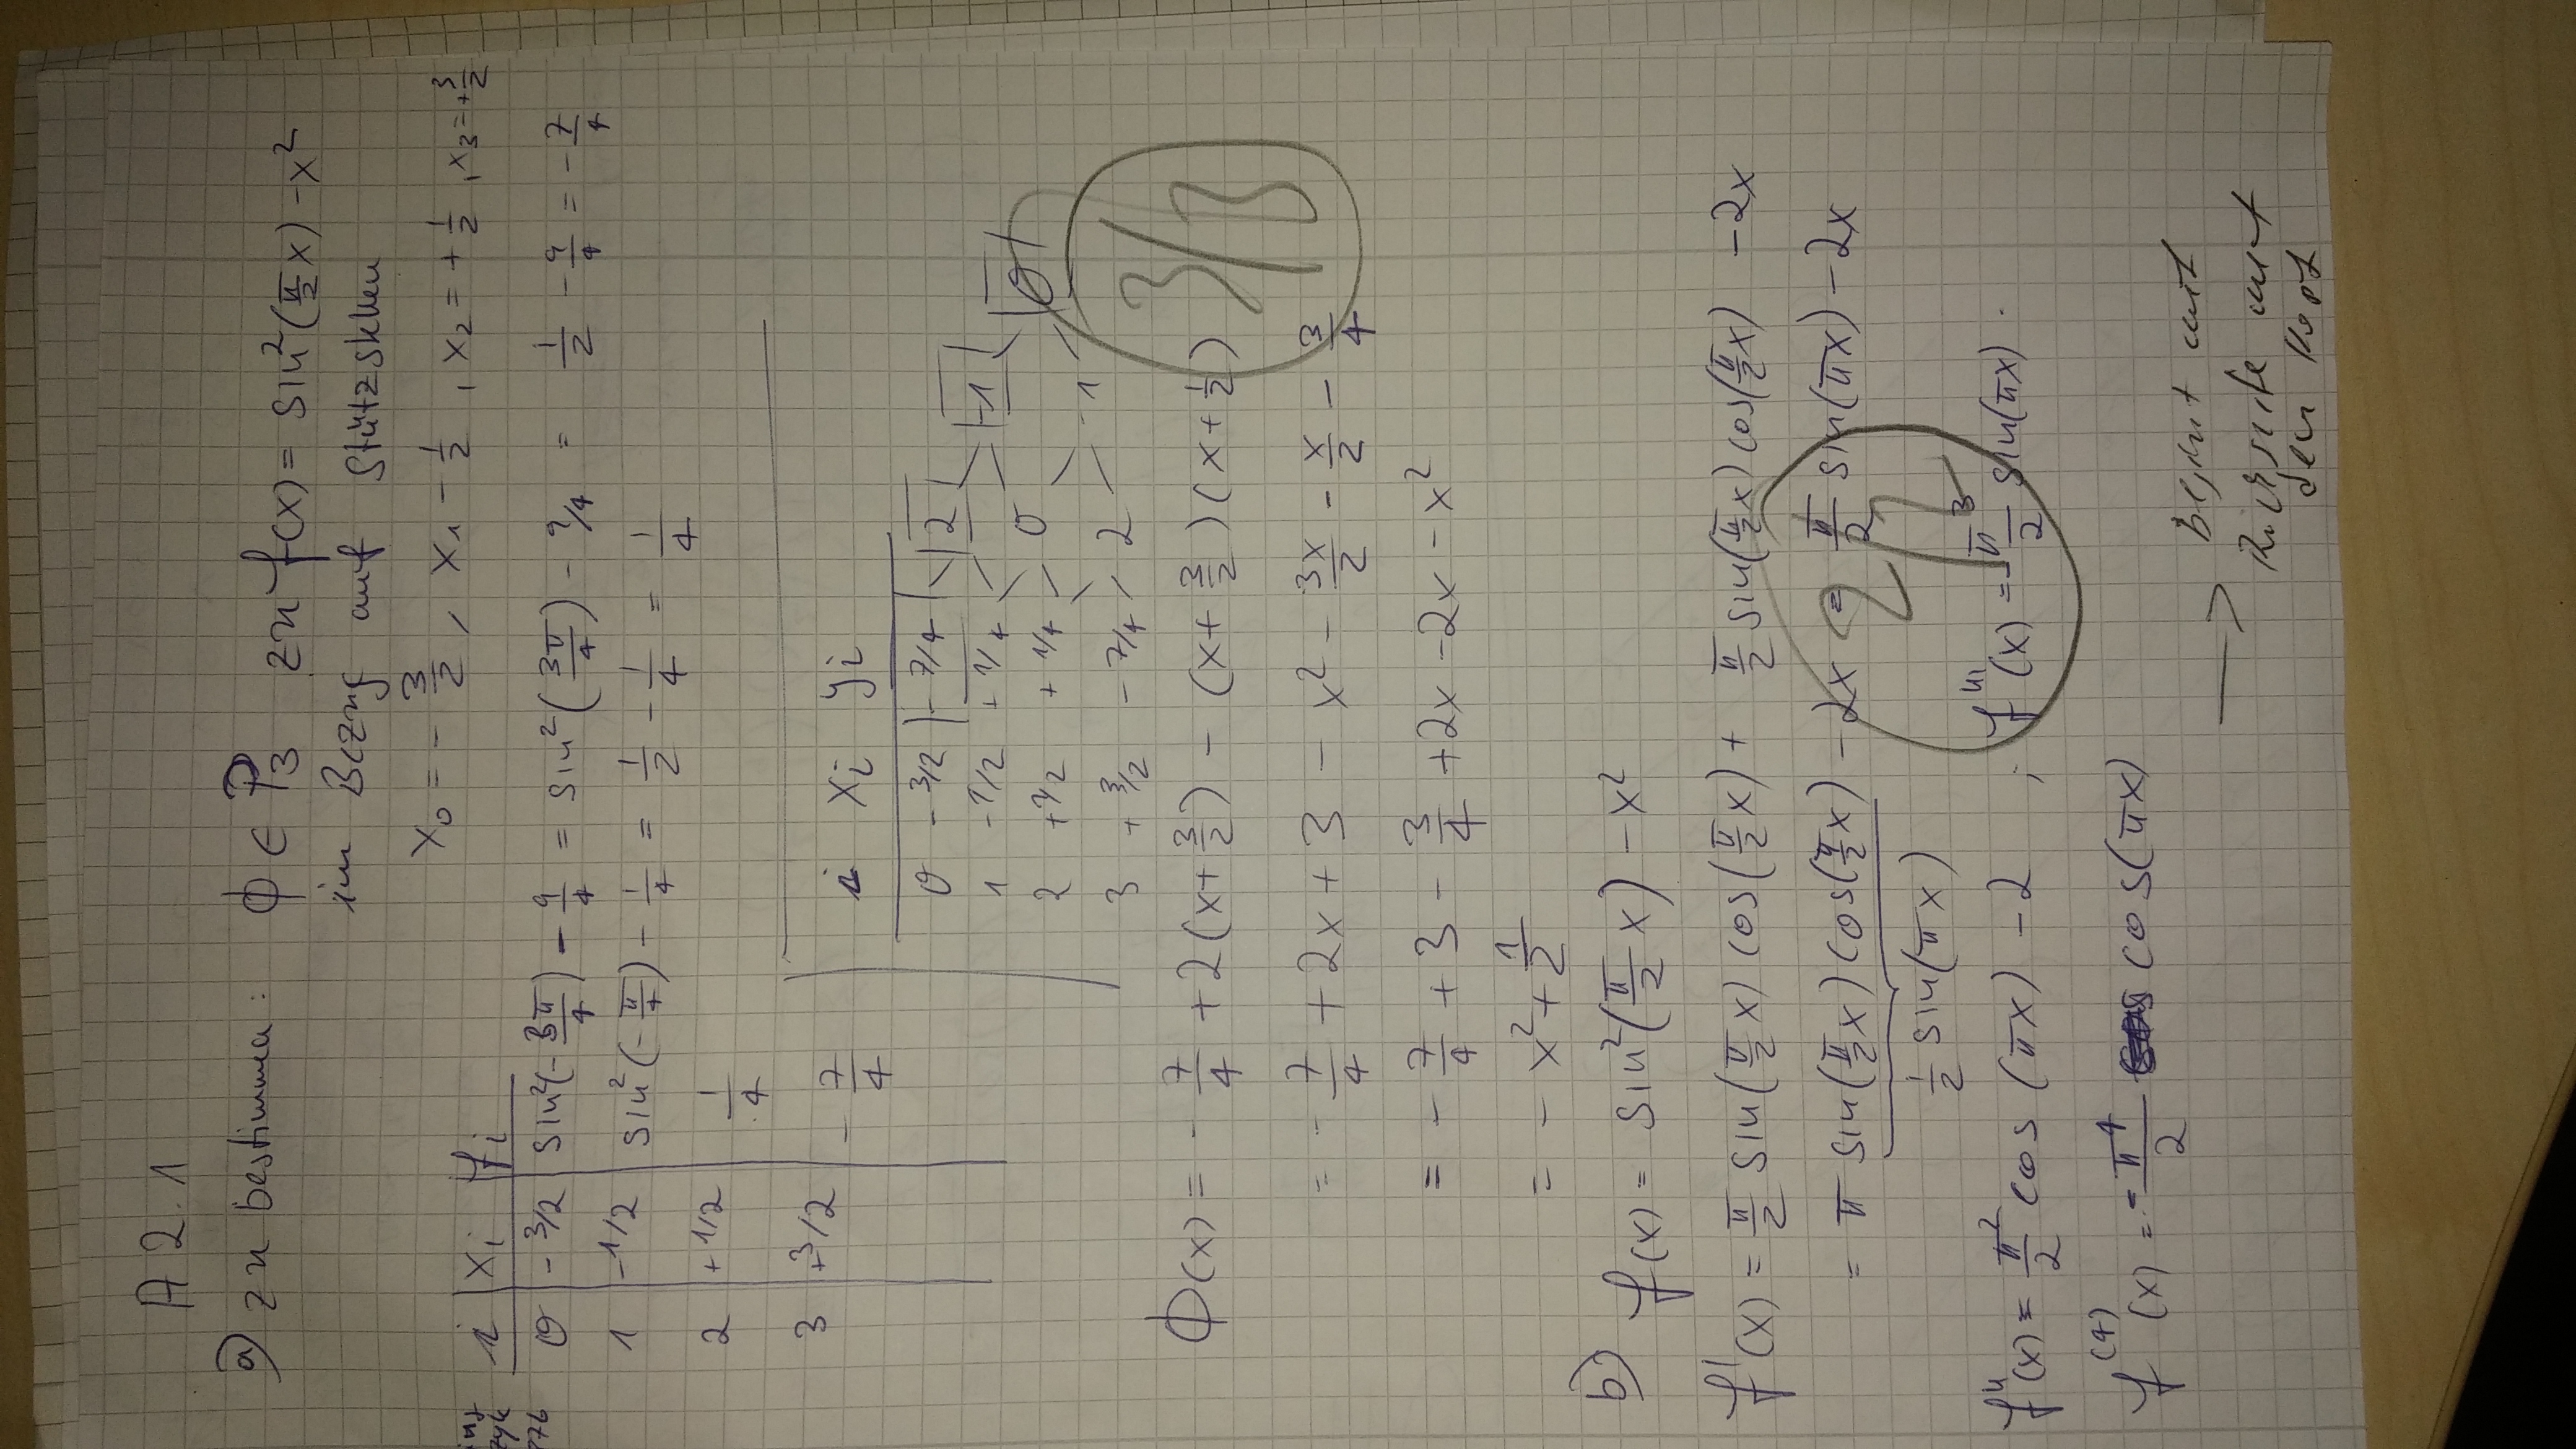 A 2.1
a) zu bestimmen: ϕ ∈ P₃ zu f(x) = sin²(π/2 x) - x²
im Bezug auf Stützstellen
x₀ = - 3/2, x₁ - 1/2, x₂ = + 1/2, x₃ = + 3/2
i xᵢ fᵢ
0 - 3/2 sin²(- 3π/4) - 9/4 = sin²(3π/4) - 9/4 = 1/2 - 9/4 = - 7/4
1 - 1/2 sin²(- π/4) - 1/4 = 1/2 - 1/4 = 1/4
2 + 1/2 1/4
3 + 3/2 - 7/4
i xᵢ yᵢ
0 - 3/2 - 7/4 2
1 - 1/2 + 1/4 -1
2 + 1/2 + 1/4 0 0
3 + 3/2 - 7/4 2 -1
3/3
ϕ(x) = - 7/4 + 2(x + 3/2) - (x + 3/2)(x + 1/2)
= - 7/4 + 2x + 3 - x² - 3x/2 - x/2 - 3/4
= - 7/4 + 3 - 3/4 + 2x - 2x - x²
= - x² + 1/2
b) f(x) = sin²(π/2 x) - x²
f'(x) = π/2 sin(π/2 x) cos(π/2 x) + π/2 sin(π/2 x) cos(π/2 x) - 2x
= π sin(π/2 x) cos(π/2 x) - 2x = π/2 sin(πx) - 2x
1/2 sin(πx)
2/2
f''(x) = π²/2 cos(πx) - 2 ; f'''(x) = - π³/2 sin(πx)
f⁽⁴⁾(x) = - π⁴/2 cos(πx)
→
dem Kopf